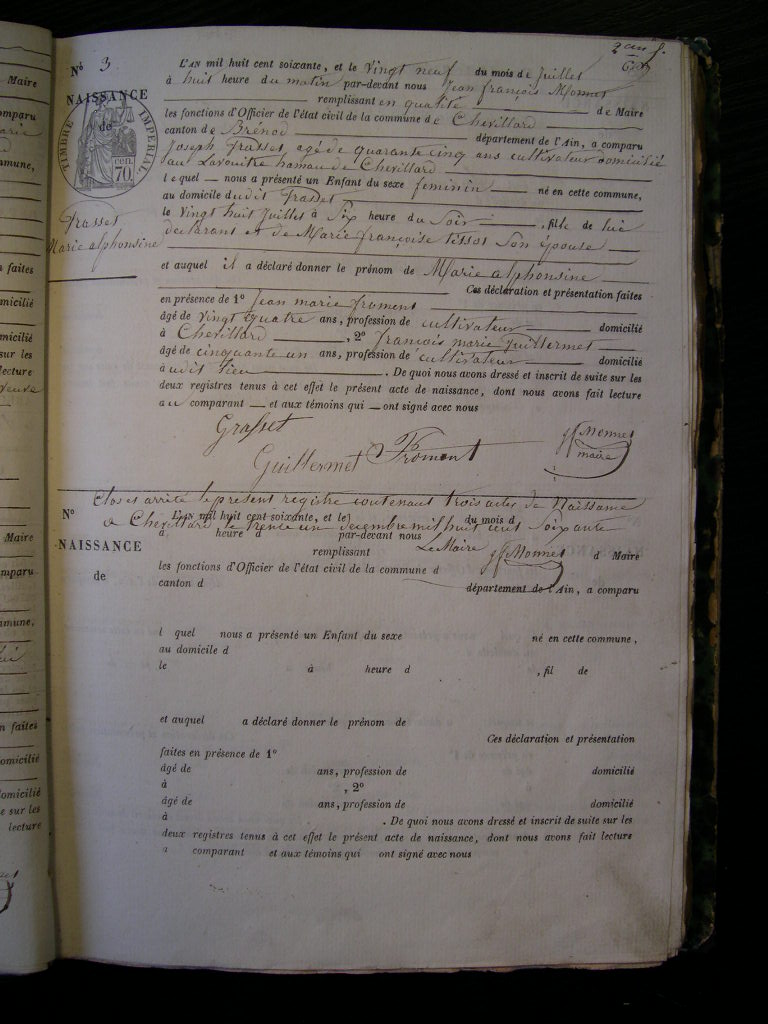 2e et d. f.
Nº 3
NAISSANCE
de
TIMBRE IMPÉRIAL
70 cen.
Grasset
Marie alphonsine
L'AN mil huit cent soixante, et le Vingt neuf du mois de Juillet
à huit heure du matin par-devant nous Jean françois Monnet
remplissant en qualité de Maire
les fonctions d'Officier de l'état civil de la commune de Chevillard
canton de Brénod département de l'Ain, a comparu
Joseph Grasset, agé de quarante cinq ans cultivateur domicilié
au Lavouitre hamau de Chevillard
lequel nous a présenté un Enfant du sexe feminin né en cette commune,
au domicile dudit Grasset
le Vingt huit Juillet à Six heure du Soir, fille de lui
declarant et de Marie françoise tissot Son épouse
et auquel il a déclaré donner le prénom de Marie alphonsine
Ces déclaration et présentation faites
en présence de 1º Jean marie froment
âgé de Vingt quatre ans, profession de cultivateur domicilié
à Chevillard, 2º françois marie Guillermet
âgé de cinquante un ans, profession de cultivateur domicilié
à udit lieu. De quoi nous avons dressé et inscrit de suite sur les
deux registres tenus à cet effet le présent acte de naissance, dont nous avons fait lecture
au comparant et aux témoins qui ont signé avec nous
Grasset
Guillermet Froment
jf Monnet
maire
Clos et arrêté le present registre contenant trois actes de Naissance
a Chevillard le trente un decembre mil huit cent Soixante
Le Maire jf Monnet
Nº
NAISSANCE
de
L'AN mil huit cent soixante, et le du mois d
à heure d par-devant nous
remplissant d Maire
les fonctions d'Officier de l'état civil de la commune d
canton d département de l'Ain, a comparu
l quel nous a présenté un Enfant du sexe né en cette commune,
au domicile d
le à heure d , fil de
et auquel a déclaré donner le prénom de
Ces déclaration et présentation
faites en présence de 1º
âgé de ans, profession de domicilié
à , 2º
âgé de ans, profession de domicilié
à . De quoi nous avons dressé et inscrit de suite sur les
deux registres tenus à cet effet le présent acte de naissance, dont nous avons fait lecture
a comparant et aux témoins qui ont signé avec nous